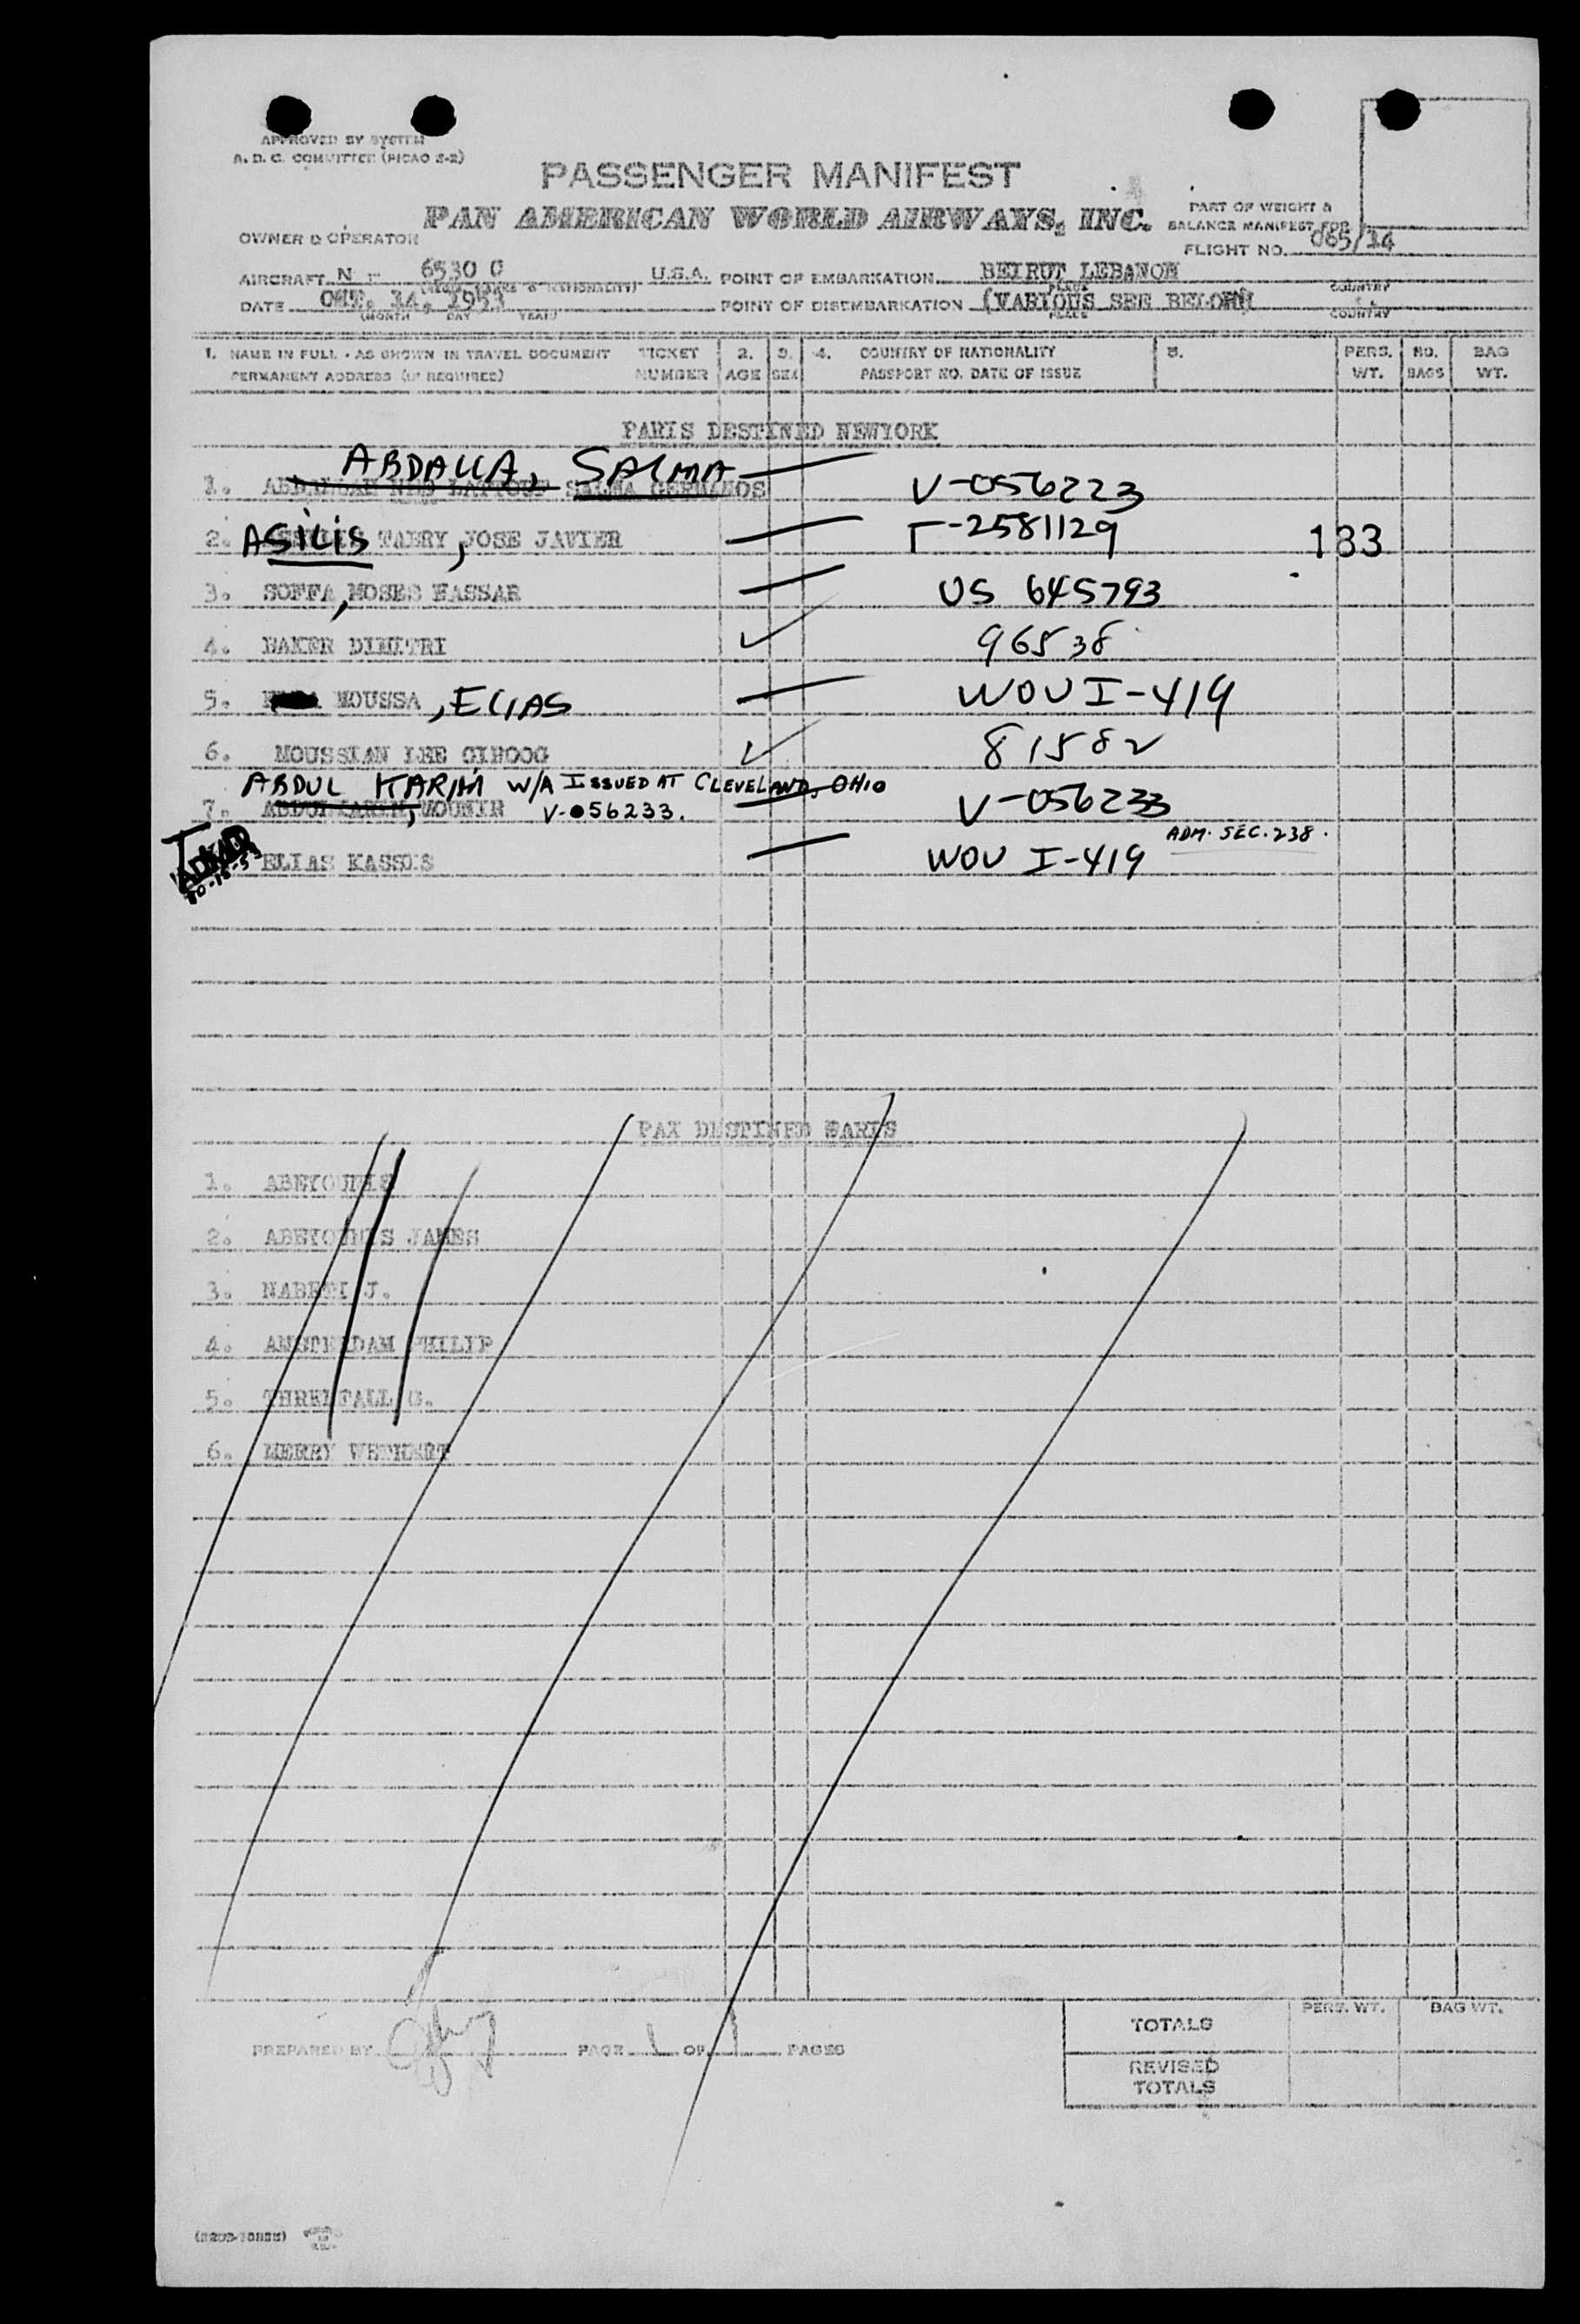 APPROVED BY SYSTEM
A. D. C. COMMITTEE (PICAO 2-2)
PASSENGER MANIFEST
PAN AMERICAN WORLD AIRWAYS, INC.
PART OF WEIGHT &
BALANCE MANIFEST FOR
FLIGHT NO. 065/14
OWNER & OPERATOR
AIRCRAFT N 6530 C U.S.A. POINT OF EMBARKATION BEIRUT LEBANON
PLACE COUNTRY
DATE 14, 1953 POINT OF DISEMBARKATION (VARIOUS SEE BELOW)
(MONTH DAY YEAR) PLACE COUNTRY
1. NAME IN FULL - AS SHOWN IN TRAVEL DOCUMENT TICKET 2. 3. 4. COUNTRY OF NATIONALITY 5. PERS. NO. BAG
PERMANENT ADDRESS (IF REQUIRED) NUMBER AGE SEX PASSPORT NO. DATE OF ISSUE WT. BAGS WT.
PARIS DESTINED NEWYORK
ABDALLA, SALMA
1. SALMA GERMANOS V-056223
2. ASILIS TABRY, JOSE JAVIER -2581129 133
3. SOFFA, MOSES NASSAR US 645793
4. BAKER DIMITRI 96538
5. MOUSSA, ELIAS WOU I-419
6. MOUSSIAN LEE 81582
ABDUL KARIM W/A ISSUED AT CLEVELAND, OHIO
7. , MOUNIR V-056233. V-056233
ADM. SEC. 238.
ELIAS KASSOUS WOU I-419
PAX DESTINED PARIS
1. ABEYOUNIS
2. ABEYOUNIS JAMES
3. J.
4. AMSTERDAM PHILIP
5. THRELFALL G.
6. MERRY
TOTALS PERS. WT. BAG WT.
PREPARED BY PAGE 1 OF 1 PAGES
REVISED
TOTALS